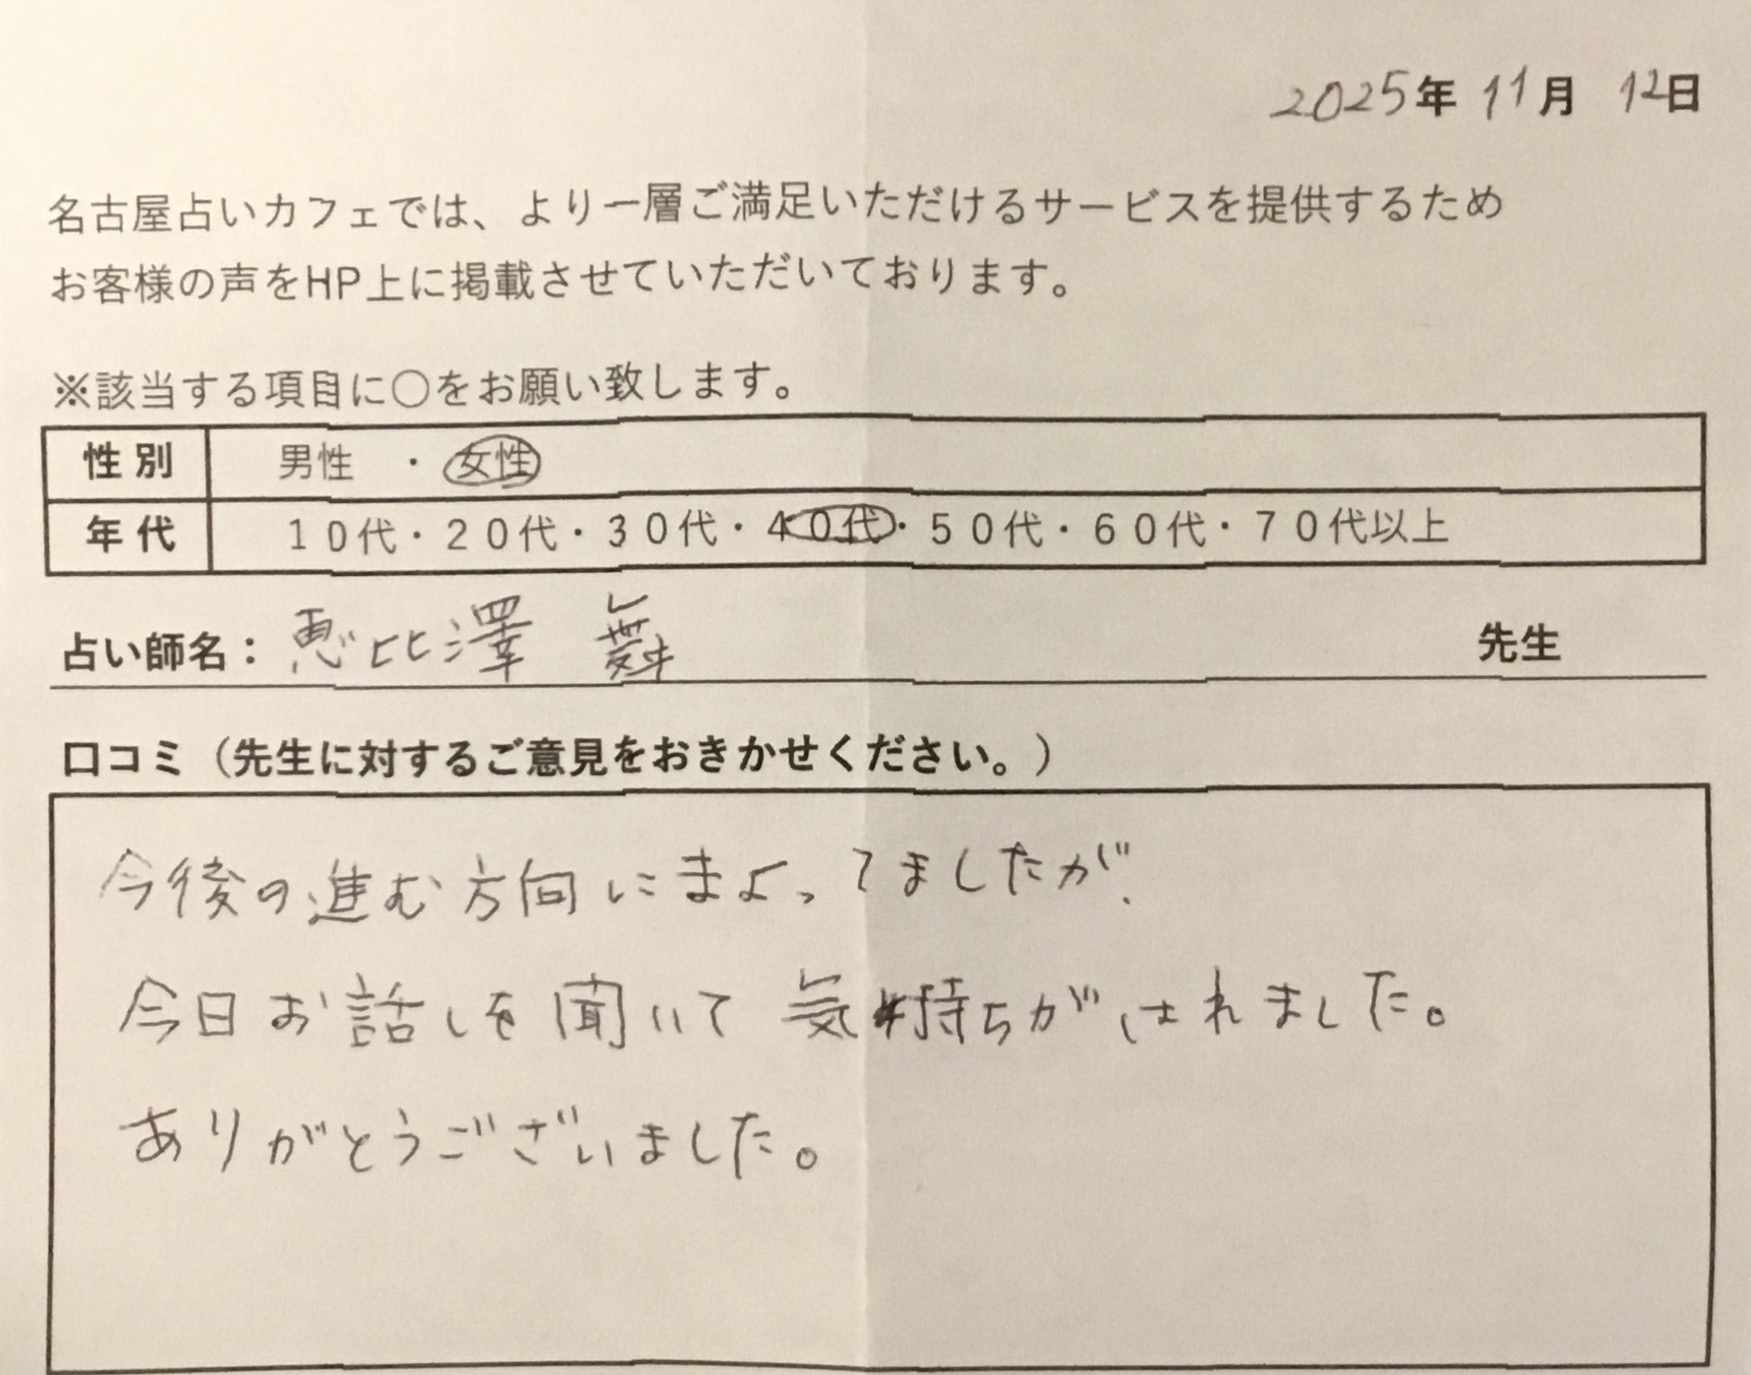 2025年 11月 12日
名古屋占いカフェでは、より一層ご満足いただけるサービスを提供するため
お客様の声をHP上に掲載させていただいております。
※該当する項目に○をお願い致します。
性別 男性 ・ 女性
年代 10代・20代・30代・40代・50代・60代・70代以上
占い師名：恵比澤 舞 先生
口コミ（先生に対するご意見をおきかせください。）
今後の進む方向にまよってましたが、
今日お話しを聞いて気持ちがはれました。
ありがとうございました。